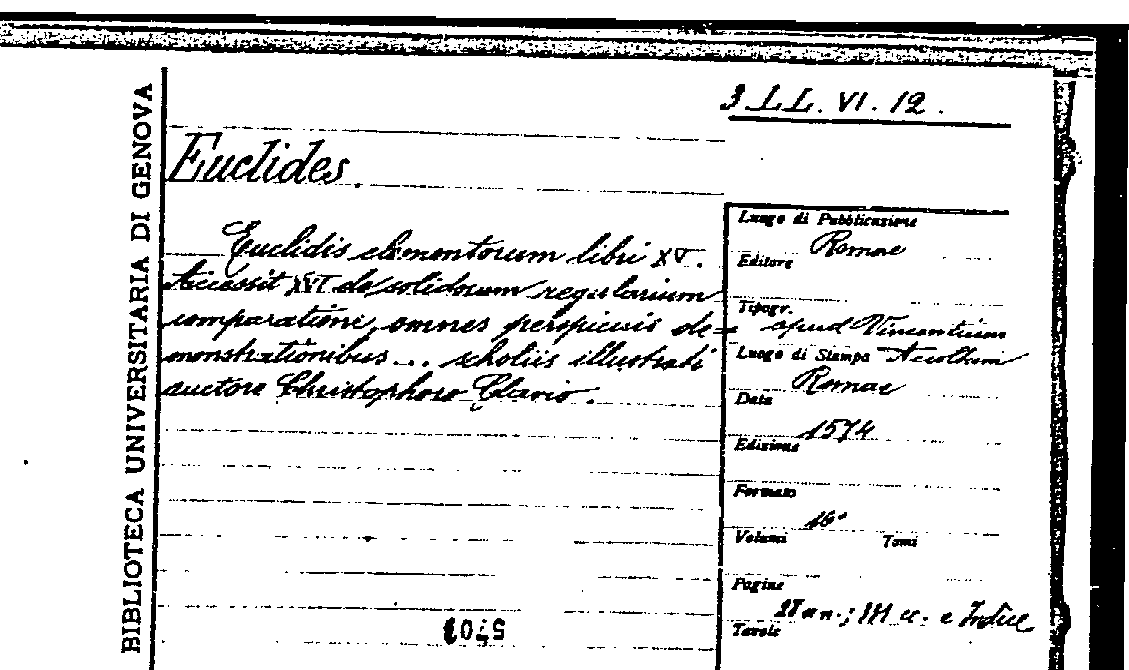 3 LL. VI. 12.
BIBLIOTECA UNIVERSITARIA DI GENOVA
Euclides.
Euclidis elementorum libri XV.
Accessit XVI de solidorum regularium
comparatione, omnes perspicuis de=
monstrationibus... scholiis illustrati
auctore Christophoro Clavio.
Luogo di Pubblicazione
Romae
Editore
Tipogr.
apud Vincentium
Luogo di Stampa Accoltum
Romae
Data
1574
Edizione
Formato
16°
Volumi Tomi
Pagine
an.; cc. e Indice
Tavole